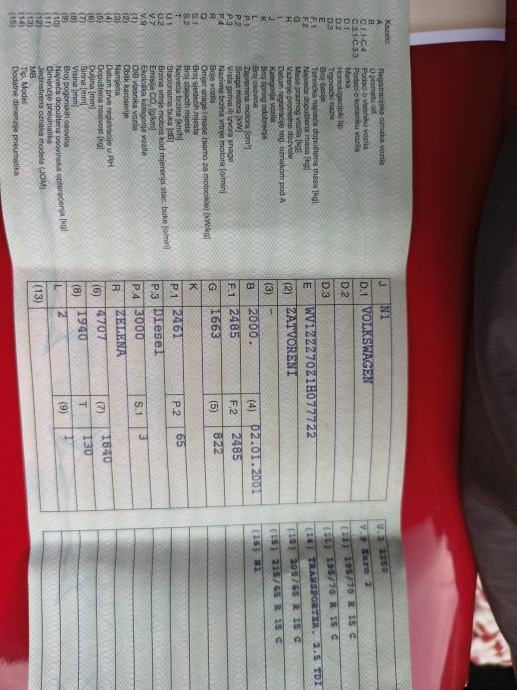 Kazalo:
A Registracijska oznaka vozila
B
C.1.1-C.4
C.3.1-C.3.3 Podaci o korisniku vozila
D.1 Marka
D.2 Homologacijski tip
D.3 Trgovački naziv
E
F.1 Tehnička najveća dopuštena masa [kg]
F.2 Najveća dopuštena masa [kg]
G Masa praznog vozila [kg]
H Važenje prometne dozvole
I
J Kategorija vozila
K Broj tipnog odobrenja
L Broj osovina
P.1 Zapremina motora [cm³]
P.2 Snaga motora [kW]
P.3 Vrsta goriva ili izvora snage
P.4 Nazivna brzina vrtnje motora [o/min]
R Boja vozila
Q Omjer snage i mase (samo za motocikle) [kW/kg]
S.1 Broj sjedećih mjesta
S.2 Broj stajaćih mjesta
T Najveća brzina [km/h]
U.1 Stacionarna buka [dB]
U.2 Brzina vrtnje motora kod mjerenja stac. buke [o/min]
V.7 Emisija CO₂ [g/km]
V.9 Ekološka kategorija vozila
(1) OIB vlasnika vozila
(2) Oblik karoserije
(3) Namjena
(4) Datum prve registracije u RH
(5) Dopuštena nosivost [kg]
(6) Duljina [mm]
(7) Širina [mm]
(8) Visina [mm]
(9) Broj pogonskih osovina
(10) Najveća dopuštena osovinska opterećenja [kg]
(11) Dimenzije pneumatika
(12) Jedinstvena oznaka modela (JOM)
(13) MB
(14) Tip, Model
(15) Dodatne dimenzije pneumatika
J N1
D.1 VOLKSWAGEN
D.2
D.3
E WV1ZZZ70Z1H077722
(2) ZATVORENI
(3) –
B 2000. (4) 02.01.2001
F.1 2485 F.2 2485
G 1663 (5) 822
K
P.1 2461 P.2 65
P.3 Diesel
P.4 3000 S.1 3
R ZELENA
(6) 4707 (7) 1840
(8) 1940 T 130
L 2 (9) 1
(13)
U.2 2250
V.9 Euro 2
(11) 195/70 R 15 C
(11) 195/70 R 15 C
(14) TRANSPORTER, 2.5 TDI
(15) 205/65 R 15 C
(15) 215/65 R 15 C
(16) N1